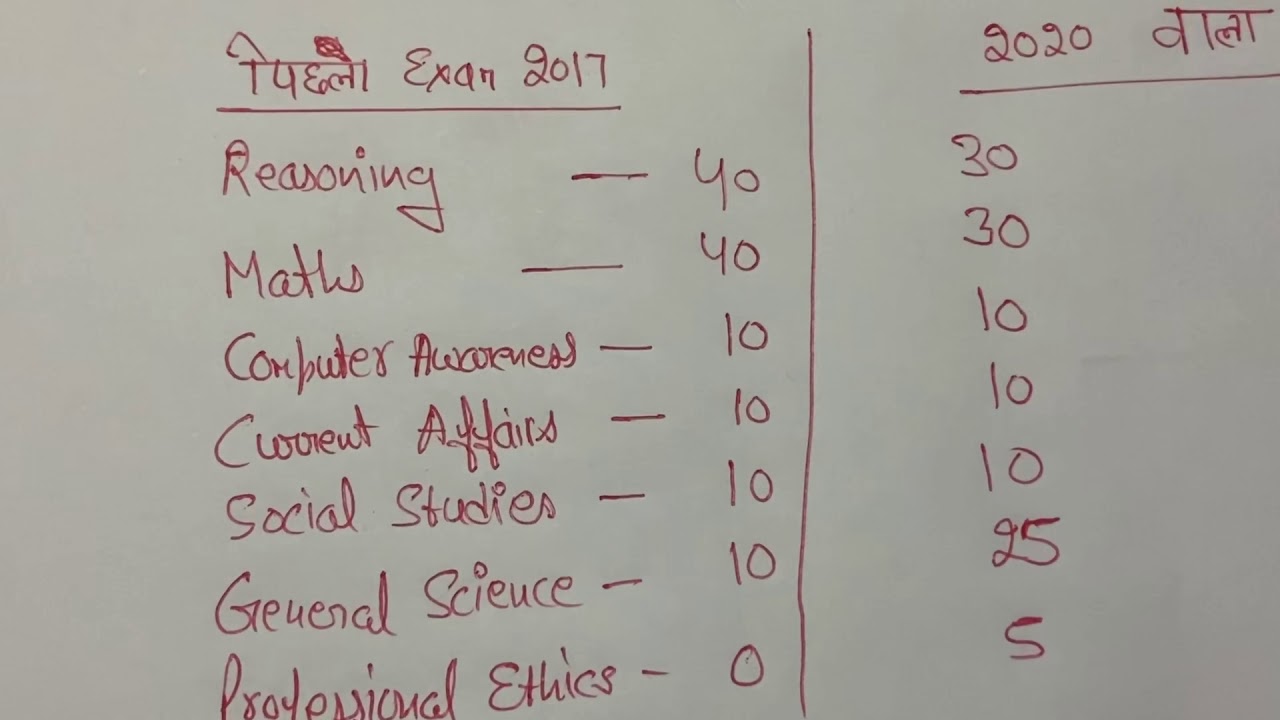 पिछला Exam 2017 2020 वाला
Reasoning — 40 30
Maths — 40 30
Computer Awareness — 10 10
Current Affairs — 10 10
Social Studies — 10 10
General Science — 10 25
Professional Ethics - 0 5